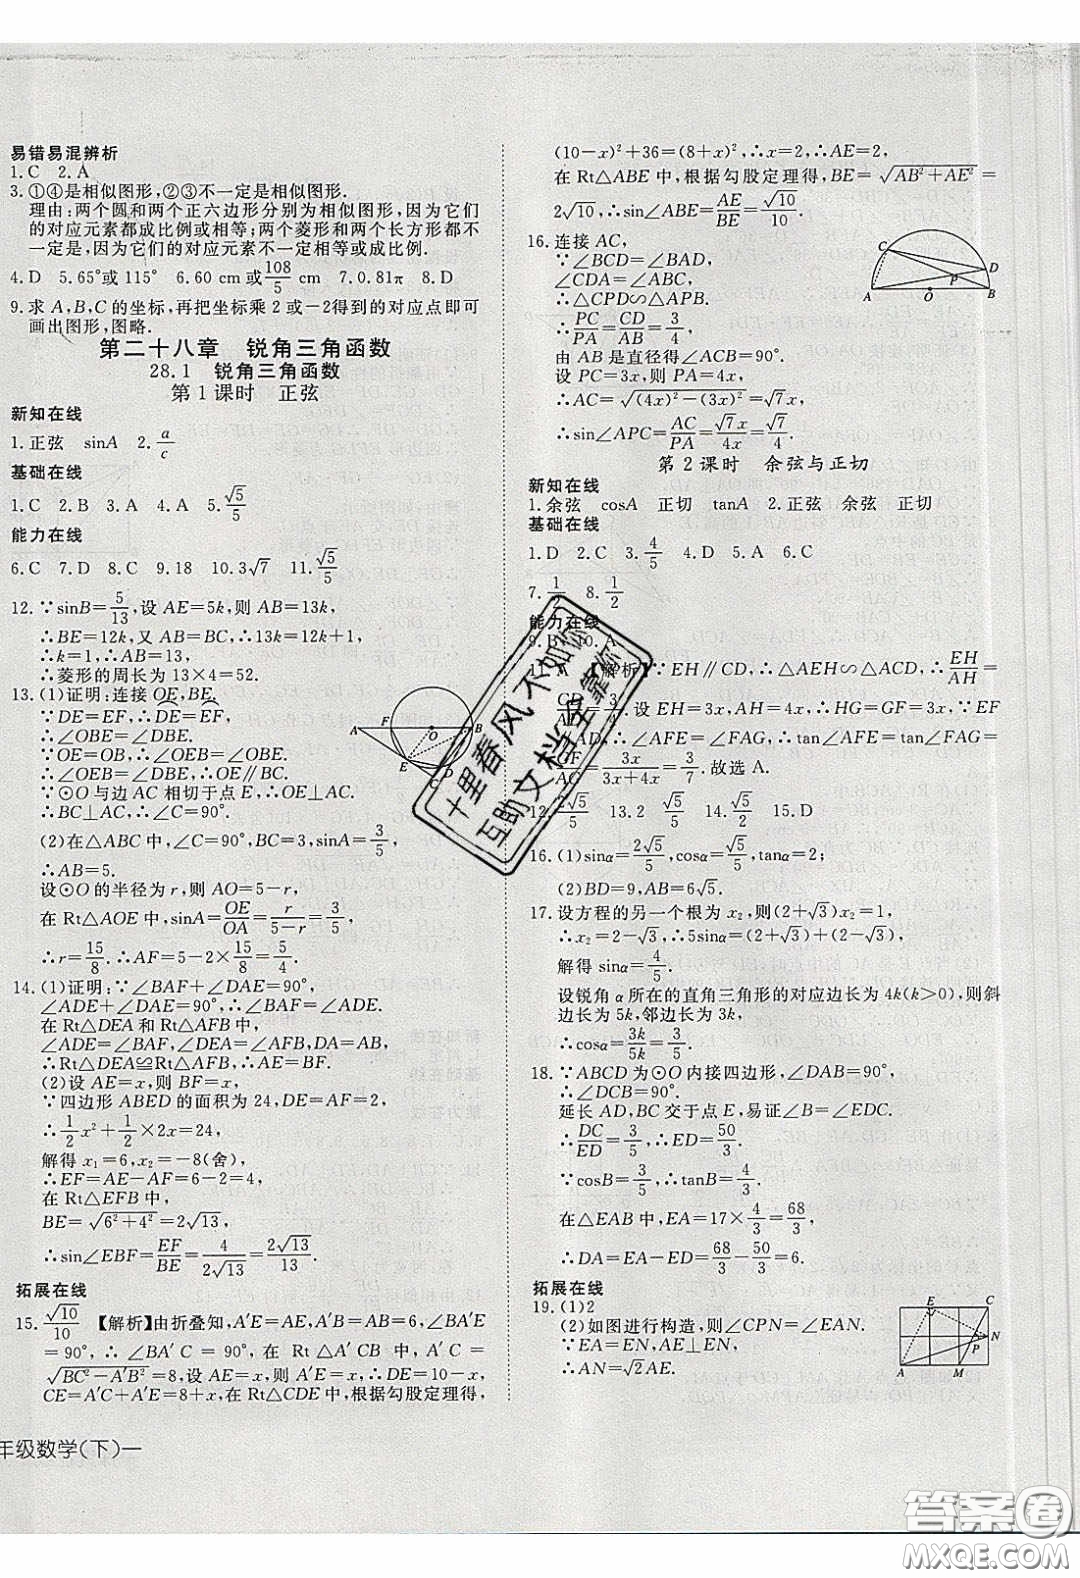 易错易混辨析
1.C 2.A
3.①④是相似图形,②③不一定是相似图形.
理由:两个圆和两个正六边形分别为相似图形,因为它们
的对应元素都成比例或相等;两个菱形和两个长方形都不
一定是,因为它们的对应元素不一定相等或成比例.
4.D 5.65°或115° 6.60 cm或108/5 cm 7.0.81π 8.D
9.求A,B,C的坐标,再把坐标乘2或-2得到的对应点即可
画出图形,图略.
第二十八章 锐角三角函数
28.1 锐角三角函数
第1课时 正弦
新知在线
1.正弦 sinA 2.a/c
基础在线
1.C 2.B 3.A 4.A 5.√5/5
能力在线
6.C 7.D 8.C 9.18 10.3√7 11.√5/5
12.∵sinB=5/13,设AE=5k,则AB=13k,
∴BE=12k,又AB=BC,∴13k=12k+1,
∴k=1,∴AB=13,
∴菱形的周长为13×4=52.
13.(1)证明:连接OE,BE.
∵DE=EF,∴DE=EF,
∴∠OBE=∠DBE.
∵OE=OB,∴∠OEB=∠OBE.
∴∠OEB=∠DBE,∴OE∥BC.
∵⊙O与边AC相切于点E,∴OE⊥AC.
∴BC⊥AC,∴∠C=90°.
(2)在△ABC中,∠C=90°,BC=3,sinA=3/5,
∴AB=5.
设⊙O的半径为r,则AO=5-r,
在Rt△AOE中,sinA=OE/OA=r/(5-r)=3/5,
∴r=15/8.∴AF=5-2×15/8=5/4.
14.(1)证明:∵∠BAF+∠DAE=90°,
∠ADE+∠DAE=90°,∴∠BAF=∠ADE.
在Rt△DEA和Rt△AFB中,
∠ADE=∠BAF,∠DEA=∠AFB,DA=AB,
∴Rt△DEA≌Rt△AFB,∴AE=BF.
(2)设AE=x,则BF=x,
∵四边形ABED的面积为24,DE=AF=2,
∴1/2x²+1/2×2x=24,
解得x₁=6,x₂=-8(舍),
∴EF=AE-AF=6-2=4,
在Rt△EFB中,
BE=√(6²+4²)=2√13,
∴sin∠EBF=EF/BE=4/(2√13)=2√13/13.
拓展在线
15.√10/10 【解析】由折叠知,A′E=AE,A′B=AB=6,∠BA′E
=90°,∴∠BA′C=90°.在Rt△A′CB中,A′C=
√(BC²-A′B²)=8,设AE=x,则A′E=x,∴DE=10-x,
CE=A′C+A′E=8+x,在Rt△CDE中,根据勾股定理得,
年级数学(下)一
(10-x)²+36=(8+x)²,∴x=2,∴AE=2,
在Rt△ABE中,根据勾股定理得,BE=√(AB²+AE²)=
2√10,∴sin∠ABE=AE/BE=√10/10.
16.连接AC,
∵∠BCD=∠BAD,
∠CDA=∠ABC,
∴△CPD∽△APB.
∴PC/PA=CD/AB=3/4
由AB是直径得∠ACB=90°.
设PC=3x,则PA=4x,
∴AC=√((4x)²-(3x)²)=√7x,
∴sin∠APC=AC/PA=√7x/4x=√7/4.
第2课时 余弦与正切
新知在线
1.余弦 cosA 正切 tanA 2.正弦 余弦 正切
基础在线
1.D 2.C 3.4/5 4.D 5.A 6.C
7.1/2 8.1/2
能力在线
9.B 10.A
11.A 【解析】∵EH∥CD,∴△AEH∽△ACD,∴EH/AH
3/4.设EH=3x,AH=4x,∴HG=GF=3x,∵EF
AD,∴∠AFE=∠FAG,∴tan∠AFE=tan∠FAG=
GF/AG=3x/(3x+4x)=3/7.故选A.
12.2√5/5 13.2 14.√5/2 15.D
16.(1)sinα=2√5/5,cosα=√5/5,tanα=2;
(2)BD=9,AB=6√5.
17.设方程的另一个根为x₂,则(2+√3)x₂=1,
∴x₂=2-√3,∴5sinα=(2+√3)+(2-√3),
解得sinα=4/5.
设锐角α所在的直角三角形的对应边长为4k(k>0),则斜
边长为5k,邻边长为3k,
∴cosα=3k/5k=3/5.
18.∵ABCD为⊙O内接四边形,∠DAB=90°,
∴∠DCB=90°.
延长AD,BC交于点E,易证∠B=∠EDC.
∴DC/ED=3/5,∴ED=50/3.
∵cosB=3/5,∴tanB=4/3.
在△EAB中,EA=17×4/3=68/3,
∴DA=EA-ED=68/3-50/3=6.
拓展在线
19.(1)2
(2)如图进行构造,则∠CPN=∠EAN.
∵EA=EN,AE⊥EN,
∴AN=√2AE.
A F O B E D C
C D P A O B
E C N P A M
十里春风不如你
互助文档全靠你
答案圈
MXQE.COM